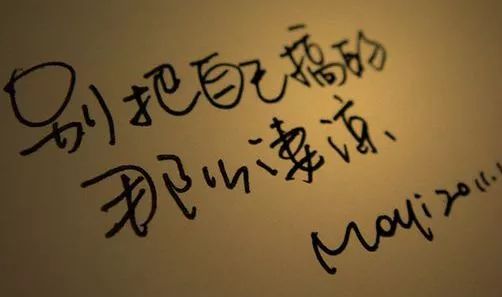 别把自己搞的
那么凄凉
Moyi 2011.1